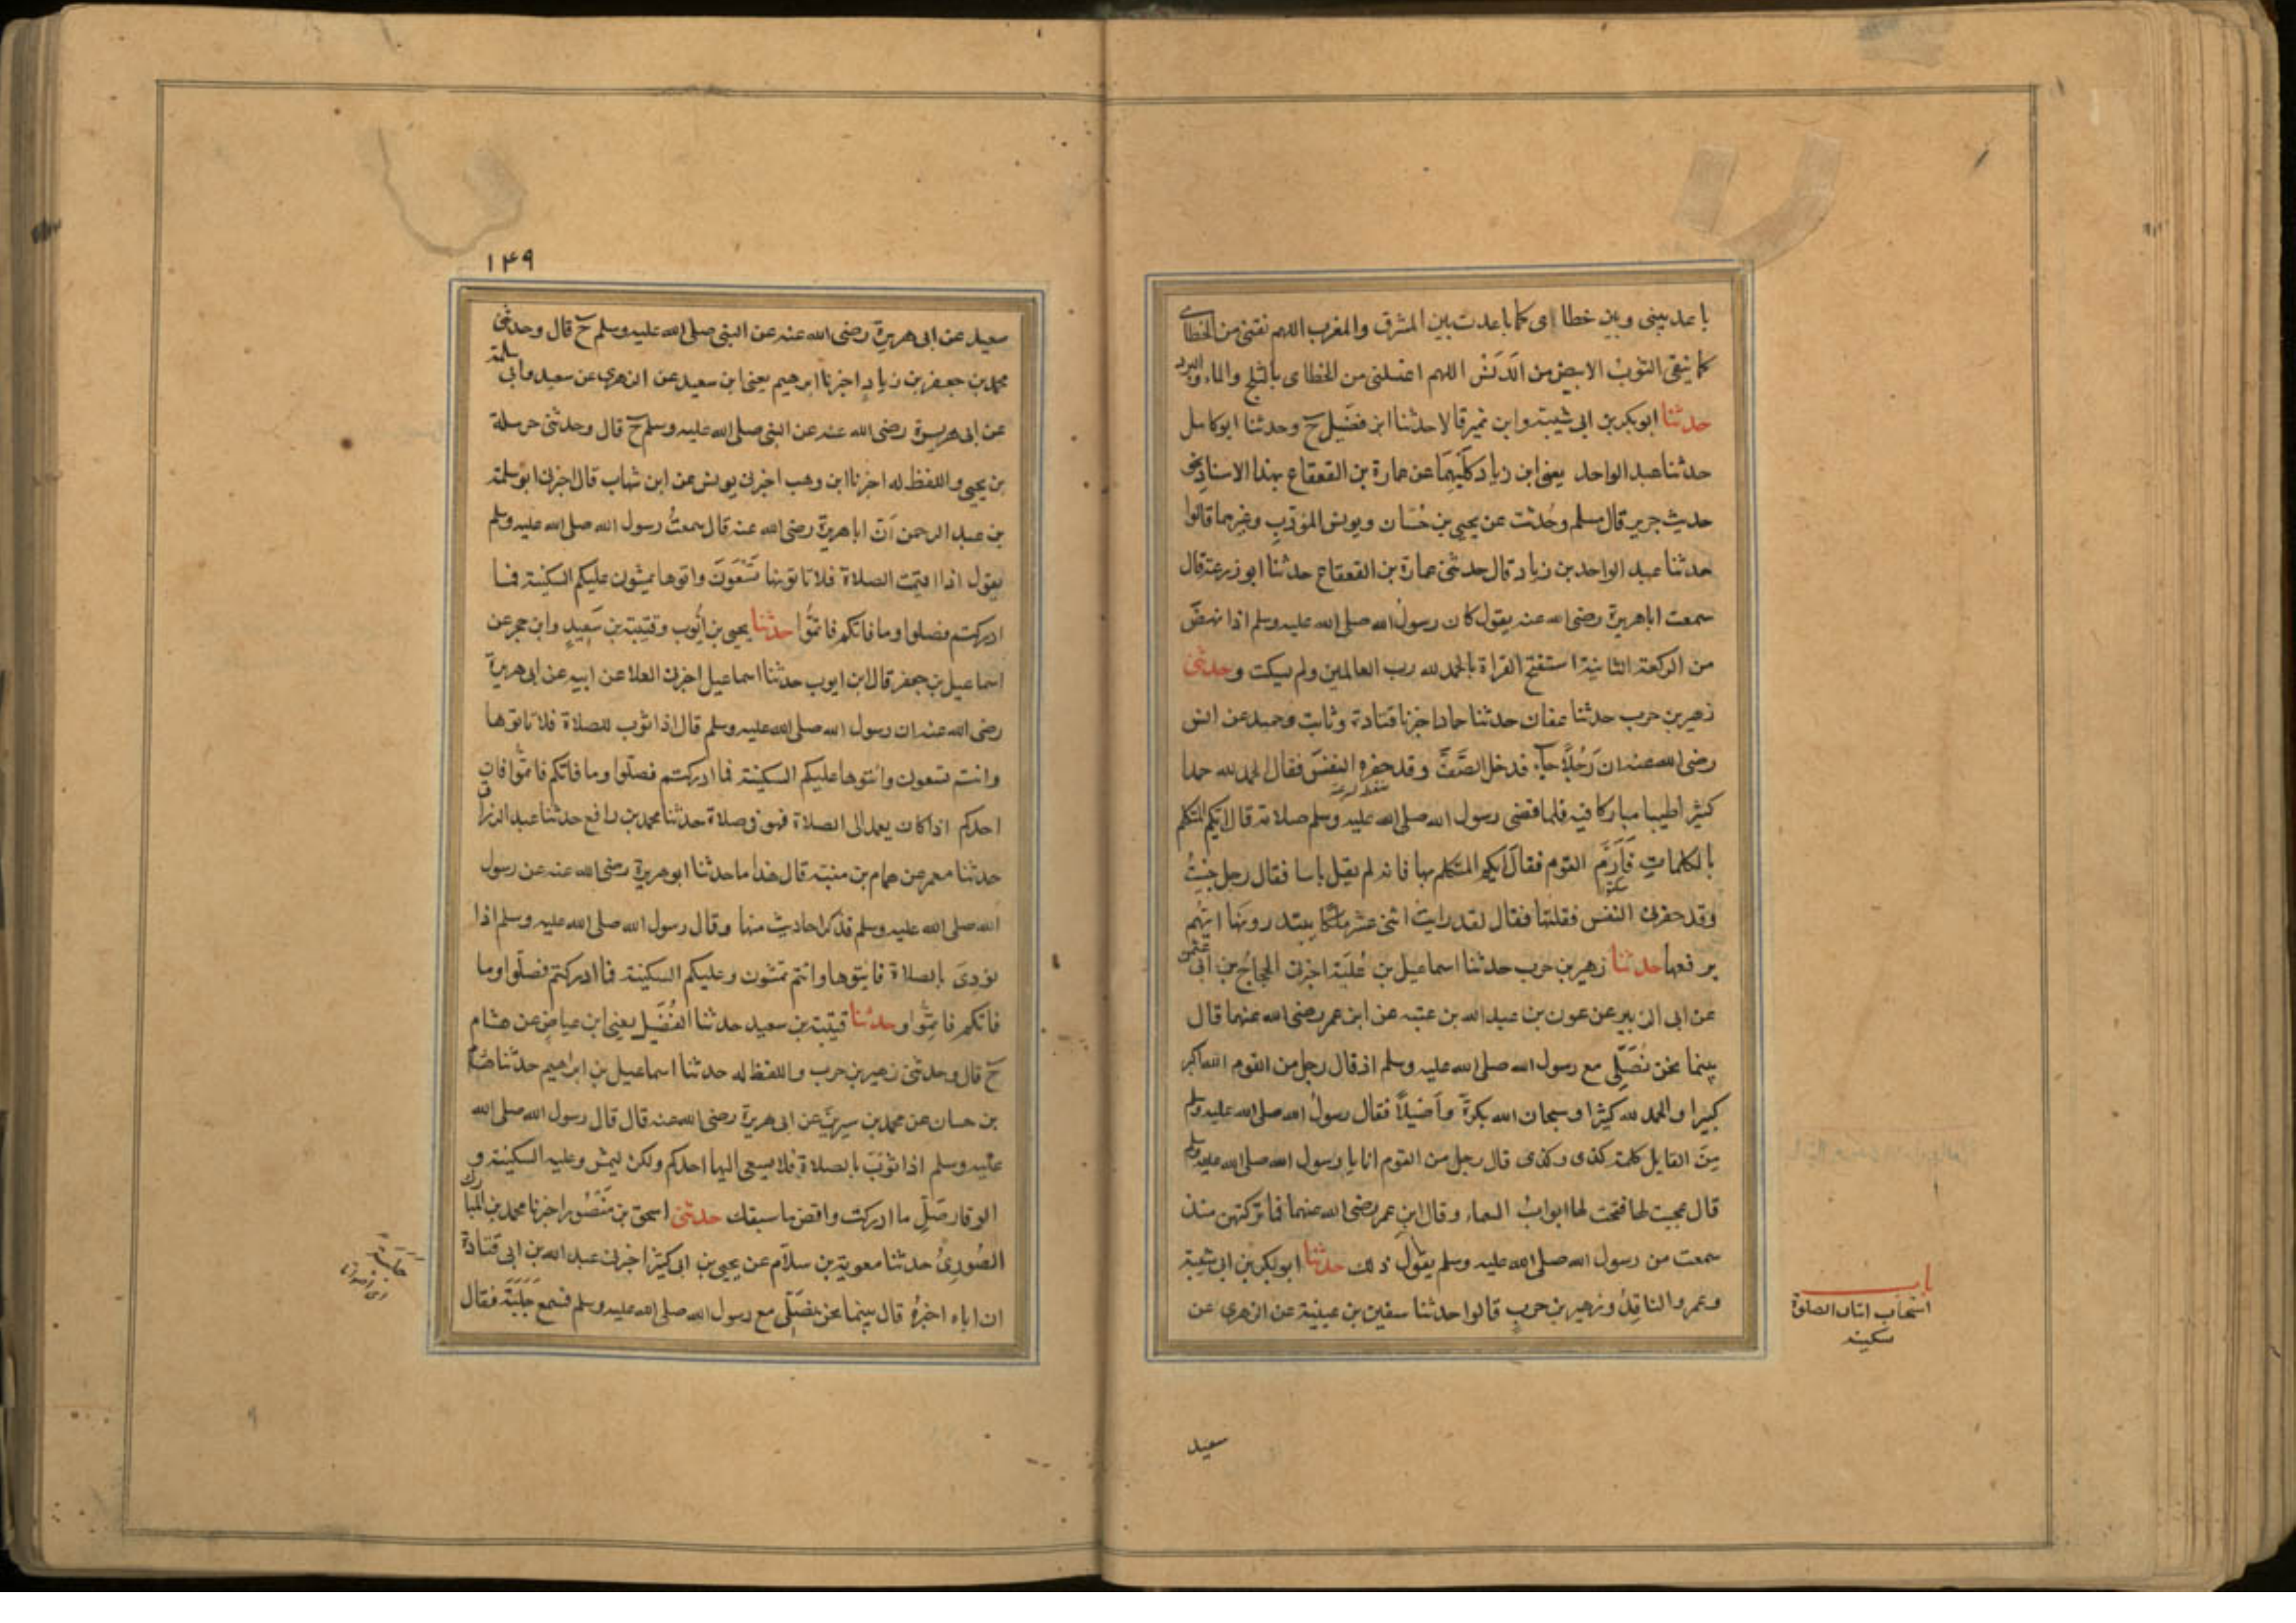 باعد بيني وبين خطاياي كما باعدت بين المشرق والمغرب اللهم نقني من الخطاى
كما ينقى الثوب الابيض من الدَنَس اللهم اغسلني من الخطاى بالثلج والماء والبرد
حدثنا ابو بكر بن ابي شيبة وابن نمير قالا حدثنا ابن فضيل ح وحدثنا ابو كامل
حدثنا عبد الواحد يعني ابن زياد كلَيهِمَا عن عمارة بن القعقاع بهذا الاسناد نحو
حديث جرير قال مسلم وحُدثت عن يحيى بن حسّان ويونس المؤدبِ وغيرهما قالوا
حدثنا عبد الواحد بن زياد قال حدثني عمارة بن القعقاع حدثنا ابو زرعة قال
سمعت ابا هريرة رضى الله عنه يقول كان رسولُ الله صلى الله عليه وسلم اذا نهضَ
من الركعة الثانية استفتح القراة بالحمد لله رب العالمين ولم يسكت وحدثني
زهير بن حرب حدثنا عفان حدثنا حماد اخبرنا قتادة وثابت وحميد عن انس
رضى الله عنه ان رَجُلًا جاء فدخل الصَّفَّ وقد حفزه النفسَ فقال الحمد لله حمدا
كثيرا طيبا مباركا فيه فلما قضى رسول الله صلى الله عليه وسلم صلاته قال ايكم المتكلم
بالكلماتِ فَاَرَمَّ القوم فقال ايكم المتكلم بها فانه لم يقل باسا فقال رجل جئتُ
وقد حفزني النفس فقلتها فقال لقد رايت اثنى عشر ملكا يبتدرونها ايّهم
يرفعها حدثنا زهير بن حرب حدثنا اسماعيل بن عُليّة اخبرني الحجاجُ بن ابي عثمن
عن ابي الزبير عن عون بن عبد الله بن عتبه عن ابن عمر رضى الله عنهما قال
بينما نحن نُصَلّي مع رسول الله صلى الله عليه وسلم اذ قال رجل من القوم الله اكبر
كبيرا والحمد لله كثيرا وسبحان الله بكرةً وأصيلًا فقال رسولُ الله صلى الله عليه وسلم
مِنَ القايل كلمة كذى وكذى قال رجل من القوم انا يا رسول الله صلى الله عليه وسلم
قال عجبت لها فتحت لها ابوابُ السماء وقال ابن عمر رضى الله عنهما فما تركتهن منذ
سمعت من رسول الله صلى الله عليه وسلم يقولُ ذلك حدثنا ابو بكر بن ابى شيبة
وعمرو الناقدُ وزهير بن حربٍ قالوا حدثنا سفين بن عيينة عن الزهرى عن
باب
استحباب اتيان الصلوة
سكينه
سعيد
١٤٩
سعيد عن ابى هريرة رضى الله عنه عن النبي صلى الله عليه وسلم ح قال وحدثني
محمد بن جعفر بن زيادٍ اخبرنا ابرهيم يعنى ابن سعيد عن الزهرى عن سعيد وابى سلمة
عن ابى هريرة رضى الله عنه عن النبى صلى الله عليه وسلم ح قال وحدثنى حرملة
بن يحيى واللفظ له اخبرنا ابن وهب اخبرنى يونس عن ابن شهاب قال اخبرنى ابو سلمة
بن عبد الرحمن اَنّ ابا هريرة رضى الله عنه قال سمعتُ رسول الله صلى الله عليه وسلم
يقول اذا اقيمت الصلاة فلا تاتوها تَسْعَوْنَ واتوها تمشون عليكم السكينة فما
ادركتم فصلوا وما فاتكم فاتمُّوا حدثنا يحيى بن ايُّوب وقتيبة بن سَعِيدٍ وابن حجر عن
اسماعيل بن جعفر قال ابن ايوب حدثنا اسماعيل اخبرنى العلا عن ابيه عن ابى هريرة
رضى الله عنه ان رسول الله صلى الله عليه وسلم قال اذا ثوّب للصلاة فلا تاتوها
وانتم تسعون وائتوها عليكم السكينة فما ادركتم فصلّوا وما فاتكم فاتمُّوا فان
احدكم اذا كان يعمد الى الصلاة فهو فى صلاة حدثنا محمد بن رافع حدثنا عبد الرزاق
حدثنا معمر عن همام بن منبّه قال هذا ما حدثنا ابو هريرة رضى الله عنه عن رسول
الله صلى الله عليه وسلم فذكر احاديث منها وقال رسول الله صلى الله عليه وسلم اذا
نودِىَ بالصلاة فايتوها وانتم تمشون وعليكم السكينة فما ادركتم فصلّوا وما
فاتكم فاتمُّوا وحدثنا قتيبة بن سعيد حدثنا الفُضَيل يعنى ابن عياض عن هشام
ح قال وحدثنى زهير بن حرب واللفظ له حدثنا اسماعيل بن ابراهيم حدثنا هشام
بن حسان عن محمد بن سيرينَ عن ابى هريرة رضى الله عنه قال قال رسول الله صلى الله
عليه وسلم اذا ثوّبَ بالصلاة فلا يسعى اليها احدكم ولكن ليمش وعليه السكينة و
الوقار صَلِّ ما ادركت واقض ما سبقك حدثنى اسحق بن مَنْصُورٍ اخبرنا محمد بن المبارك
الصُورىُّ حدثنا معوية بن سلاّم عن يحيى بن ابى كثير اخبرنى عبد الله بن ابى قتادة
ان اباه اخبرهُ قال بينما نحن نصَلِّى مع رسول الله صلى الله عليه وسلم فسمع جَلَبَةً فقال